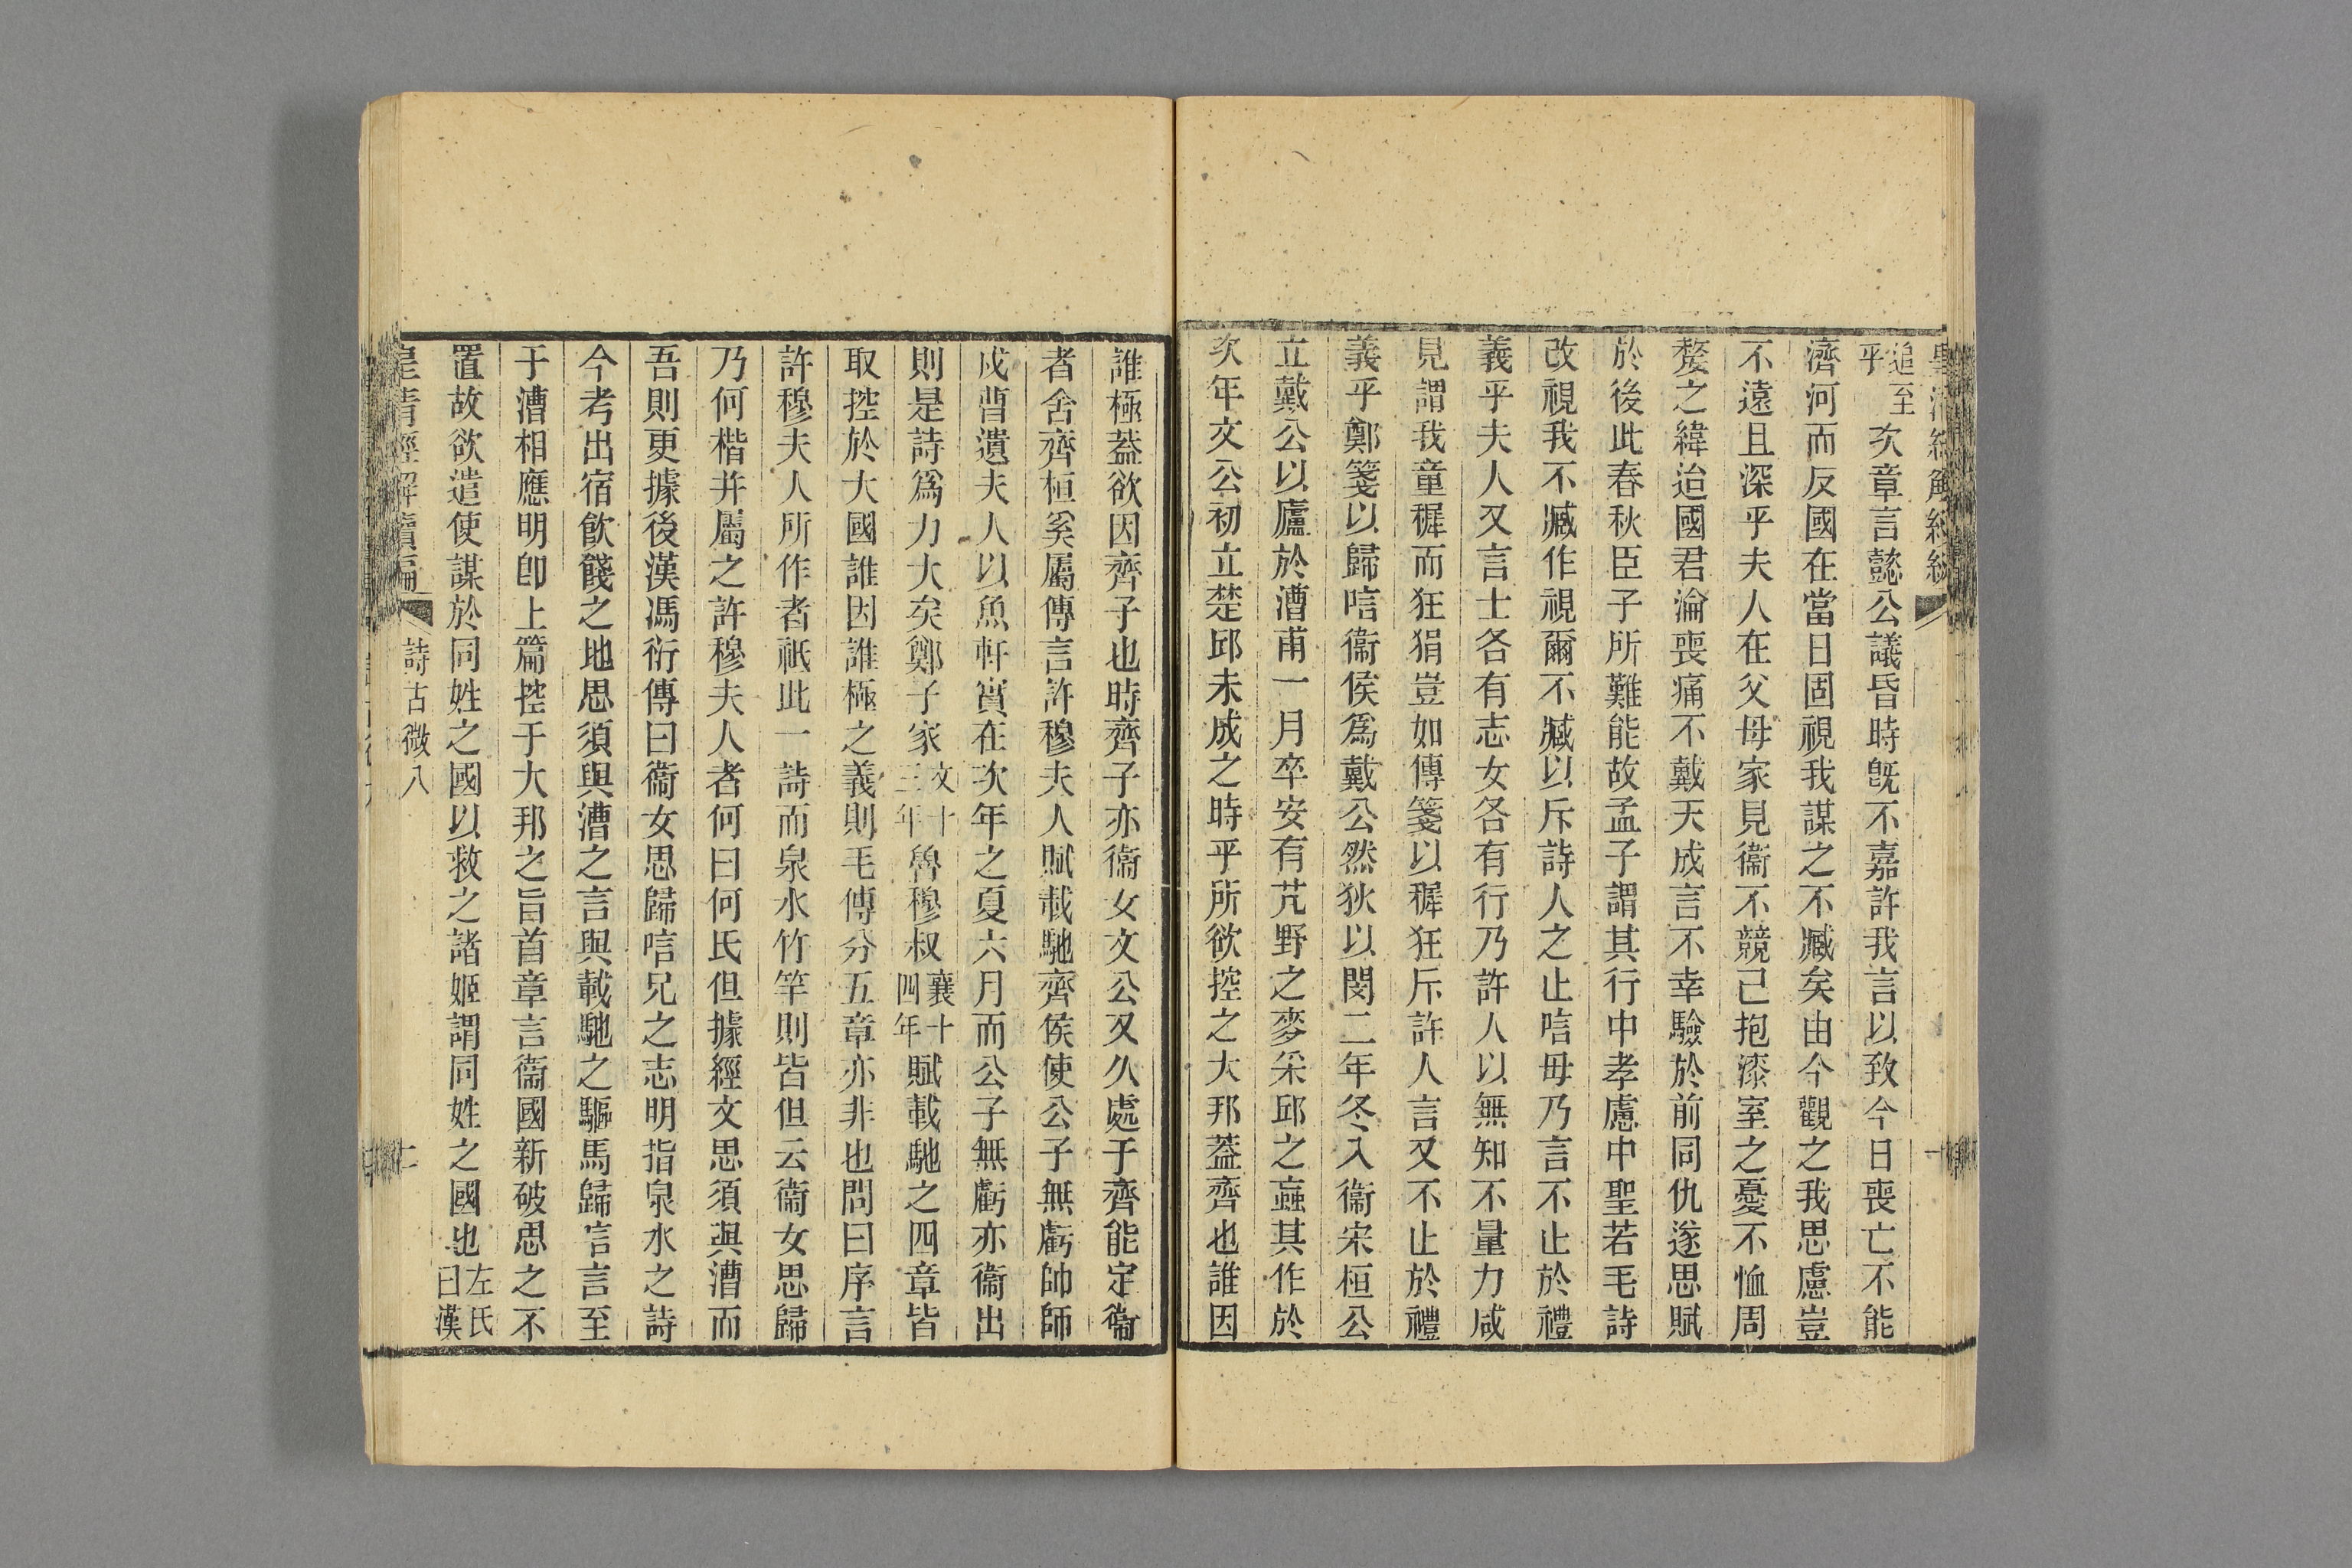 追至乎次章言懿公議昏時旣不嘉許我言以致今日喪亡不能
濟河而反國在當日固視我謀之不臧矣由今觀之我思慮豈
不遠且深乎夫人在父母家見衞不競己抱漆室之憂不恤周
嫠之緯迨國君淪喪痛不戴天成言不幸驗於前同仇遂思賦
於後此春秋臣子所難能故孟子謂其行中孝慮中聖若毛詩
改視我不臧作視爾不臧以斥詩人之止唁毋乃言不止於禮
義乎夫人又言士各有志女各有行乃許人以無知不量力咸
見謂我童穉而狂狷豈如傳箋以穉狂斥許人言又不止於禮
義乎鄭箋以歸唁衞侯爲戴公然狄以閔二年冬入衞宋桓公
立戴公以廬於漕甫一月卒安有芃野之麥采邱之蝱其作於
次年文公初立楚邱未成之時乎所欲控之大邦蓋齊也誰因
誰極蓋欲因齊子也時齊子亦衞女文公又久處于齊能定衞
者舍齊桓奚屬傳言許穆夫人賦載馳齊侯使公子無虧帥師
戍曹遺夫人以魚軒實在次年之夏六月而公子無虧亦衞出
則是詩爲力大矣鄭子家文十三年魯穆叔襄十四年賦載馳之四章皆
取控於大國誰因誰極之義則毛傳分五章亦非也問曰序言
許穆夫人所作者祇此一詩而泉水竹竿則皆但云衞女思歸
乃何楷并屬之許穆夫人者何曰何氏但據經文思須與漕而
吾則更據後漢馮衍傳曰衞女思歸唁兄之志明指泉水之詩
今考出宿飮餞之地思須與漕之言與載馳之驅馬歸唁言至
于漕相應明卽上篇控于大邦之旨首章言衞國新破思之不
置故欲遣使謀於同姓之國以救之諸姬謂同姓之國也左氏曰漢
皇清經解續編
詩古微八